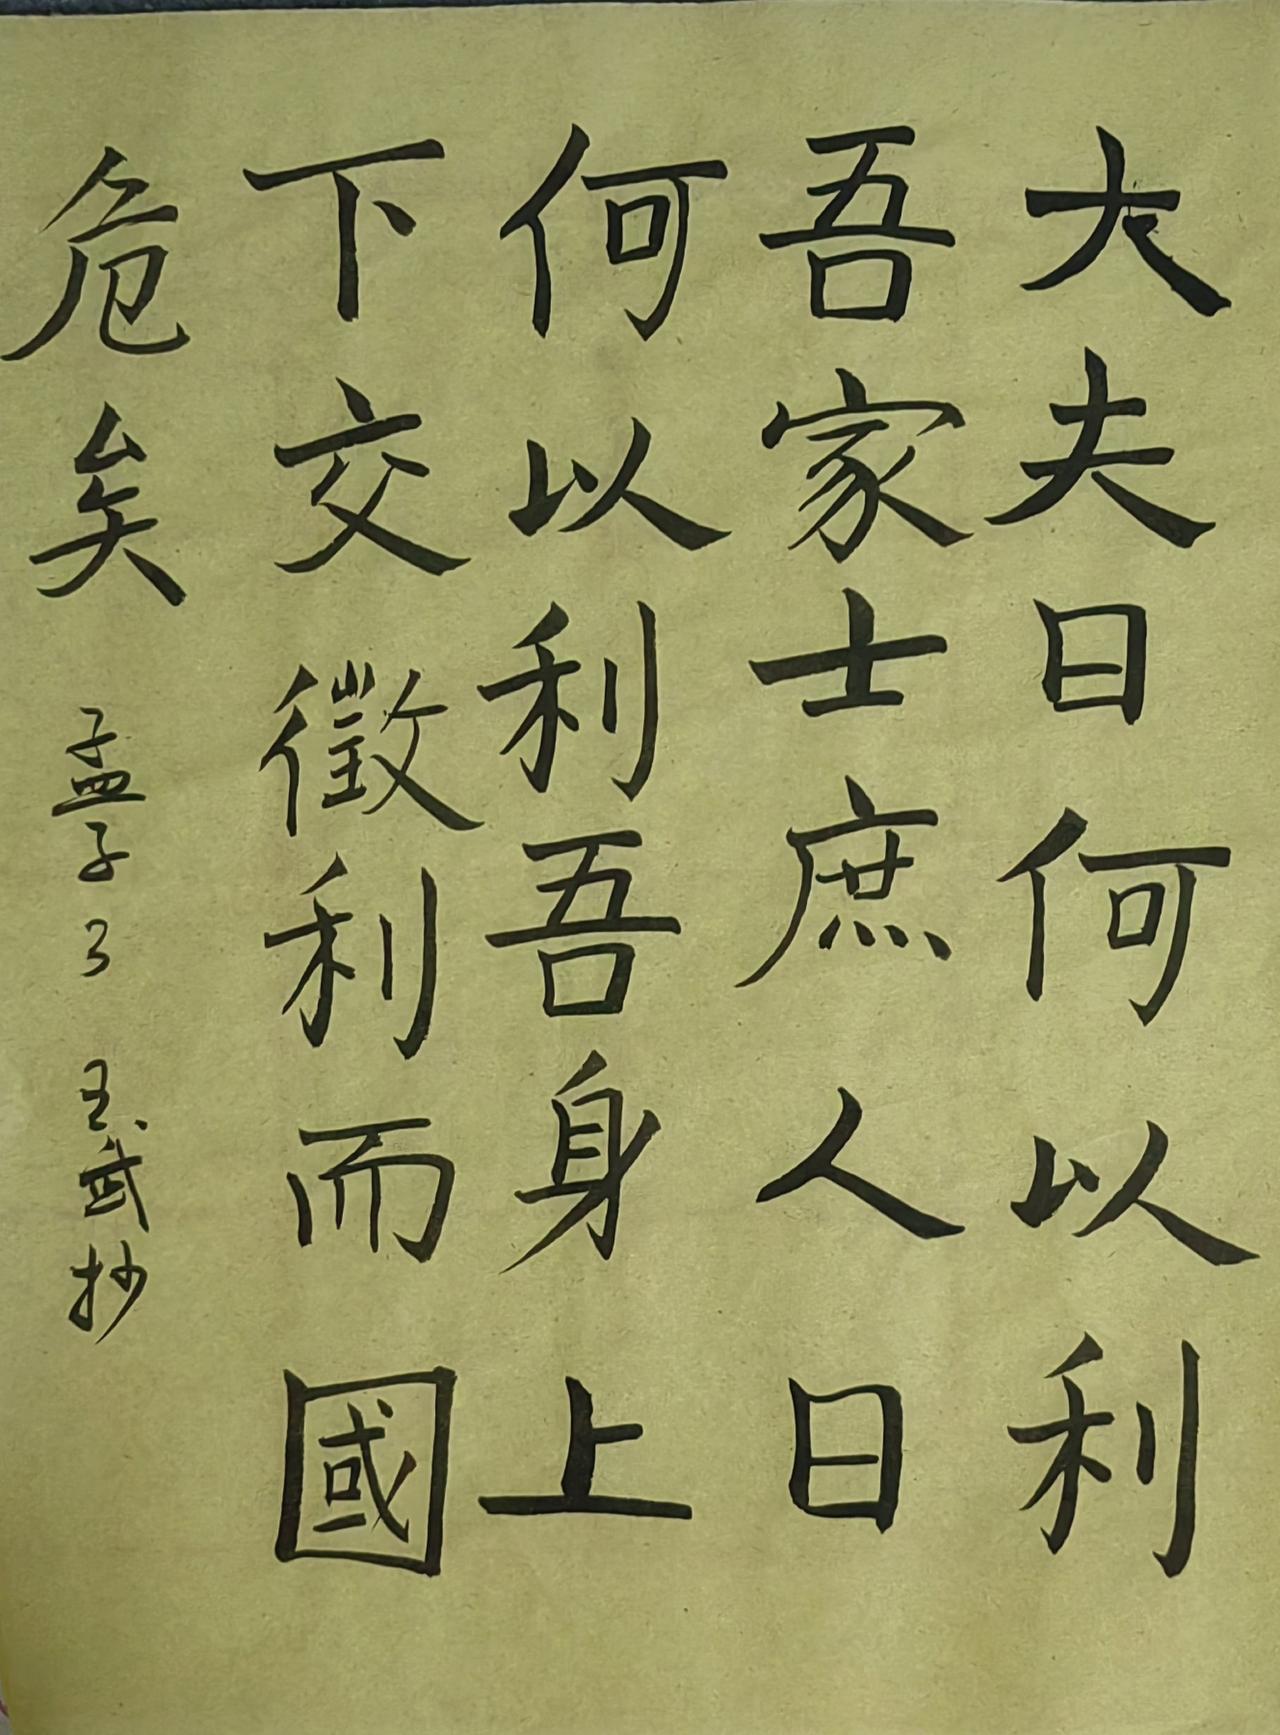 大夫曰何以利
吾家士庶人曰
何以利吾身上
下交徵利而國
危矣 孟子3 玉武抄